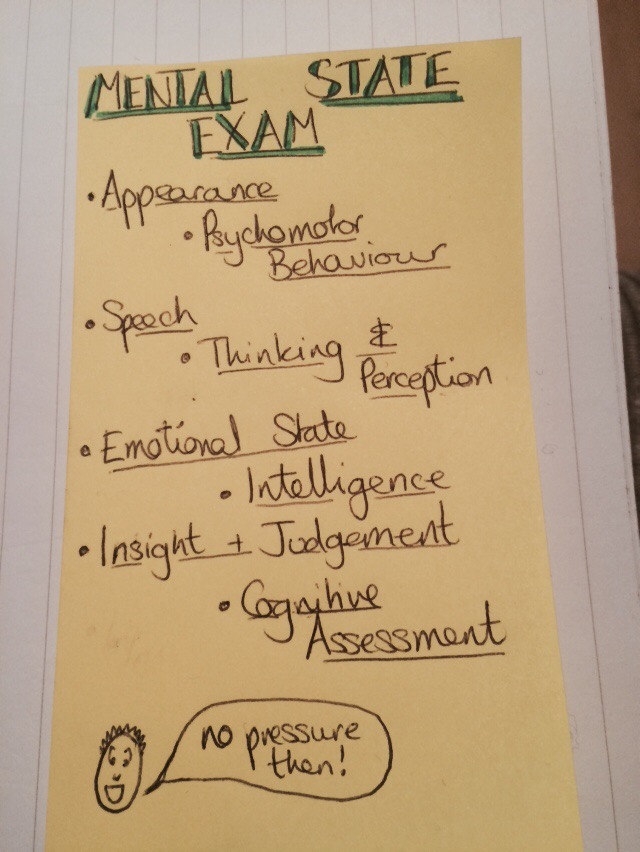 MENTAL STATE
EXAM
• Appearance
• Psychomotor
Behaviour
• Speech
• Thinking &
Perception
• Emotional State
• Intelligence
• Insight + Judgement
• Cognitive
Assessment
no pressure
then!